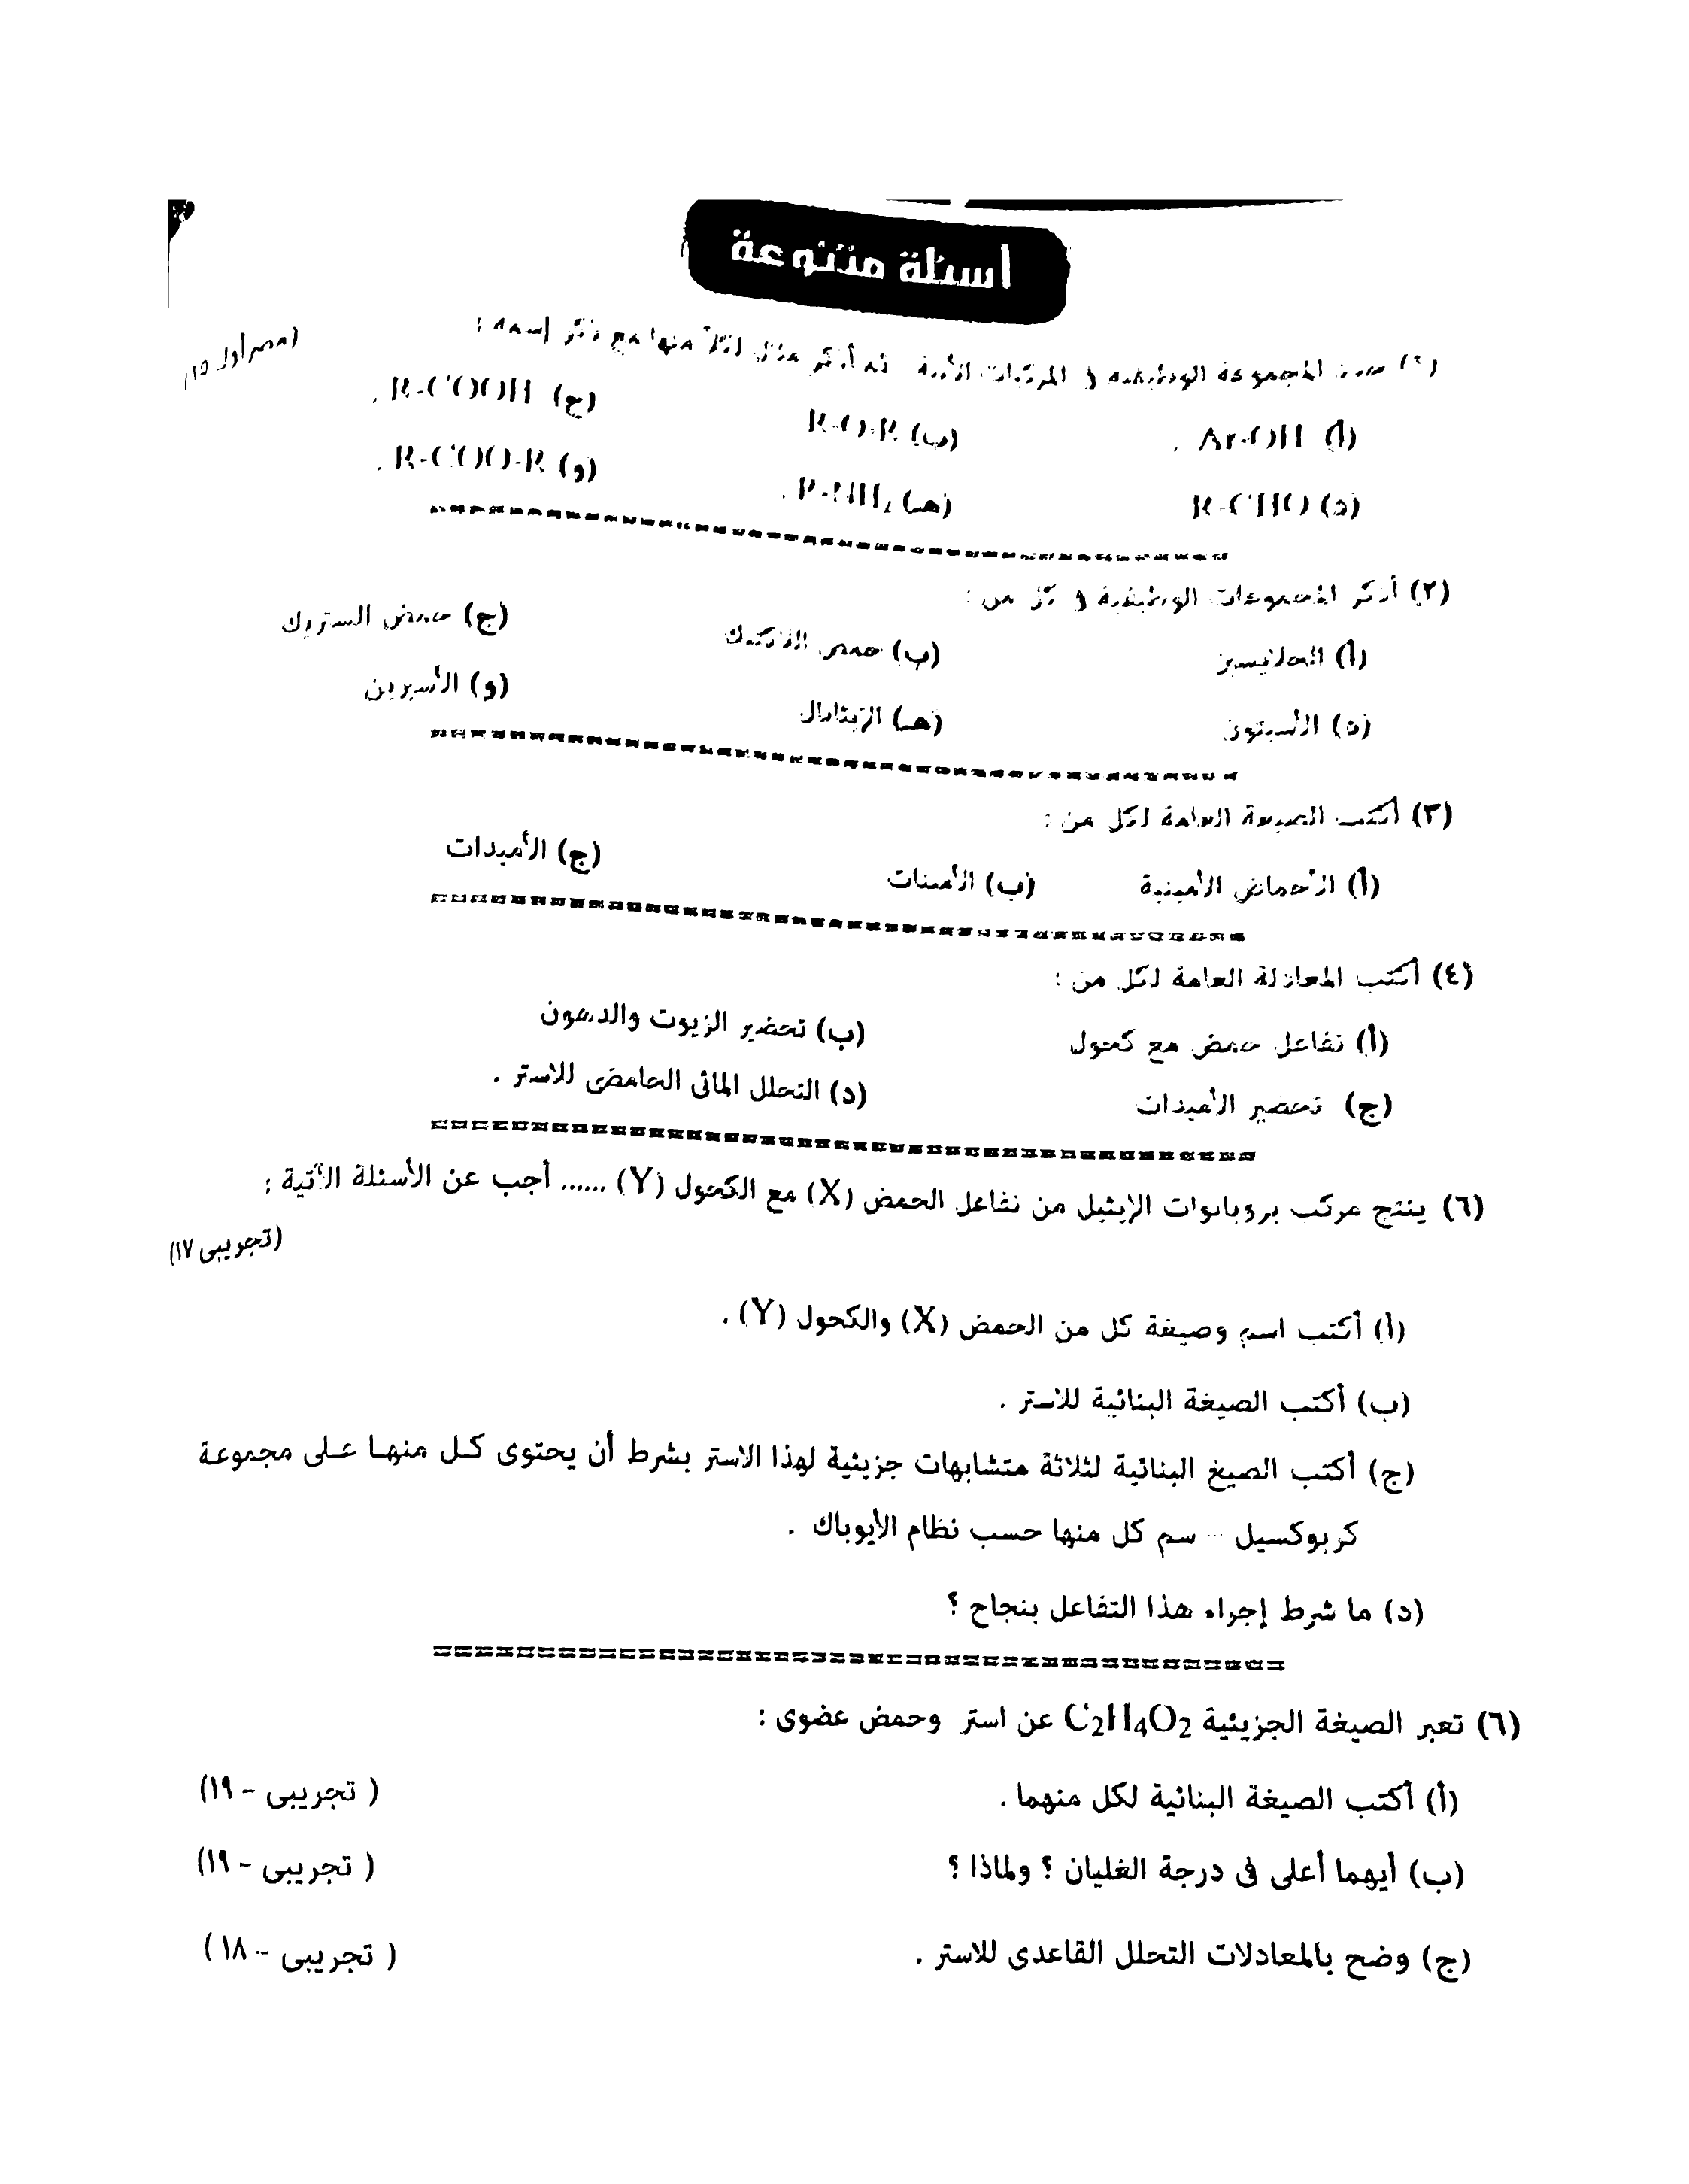 أسئلة متنوعة
(١) حدد المجموعة الوظيفية في المركبات الآتية ثم أذكر مثال لكلاً منها مع ذكر إسمه : (مصر أول ١٥)
(أ) Ar-OH . (ب) R-O-R (ج) R-COOH .
(د) R-CHO (هـ) R-NH2 . (و) R-COO-R .
(٢) أذكر المجموعات الوظيفية في كل من :
(أ) الجلايسين (ب) حمض اللاكتيك (ج) حمض الستريك
(د) الأسيتون (هـ) الإيثانال (و) الأسبرين
(٣) أكتب الصيغة العامة لكل من :
(أ) الأحماض الأمينية (ب) الأمينات (ج) الأميدات
(٤) أكتب المعادلة العامة لكل من :
(أ) تفاعل حمض مع كحول (ب) تحضير الزيوت والدهون
(ج) تحضير الأميدات (د) التحلل المائى الحامضى للاستر .
(٦) ينتج مركب بروبانوات الإيثيل من تفاعل الحمض (X) مع الكحول (Y) ...... أجب عن الأسئلة الآتية :
(تجريبى ١٧)
(أ) أكتب اسم وصيغة كل من الحمض (X) والكحول (Y) .
(ب) أكتب الصيغة البنائية للاستر .
(ج) أكتب الصيغ البنائية لثلاثة متشابهات جزيئية لهذا الاستر بشرط أن يحتوى كل منها على مجموعة
كربوكسيل – سم كل منها حسب نظام الأيوباك .
(د) ما شرط إجراء هذا التفاعل بنجاح ؟
(٦) تعبر الصيغة الجزيئية C2H4O2 عن استر وحمض عضوى :
(أ) أكتب الصيغة البنائية لكل منهما . ( تجريبى - ١٩)
(ب) أيهما أعلى فى درجة الغليان ؟ ولماذا ؟ ( تجريبى - ١٩)
(ج) وضح بالمعادلات التحلل القاعدى للاستر . ( تجريبى - ١٨ )